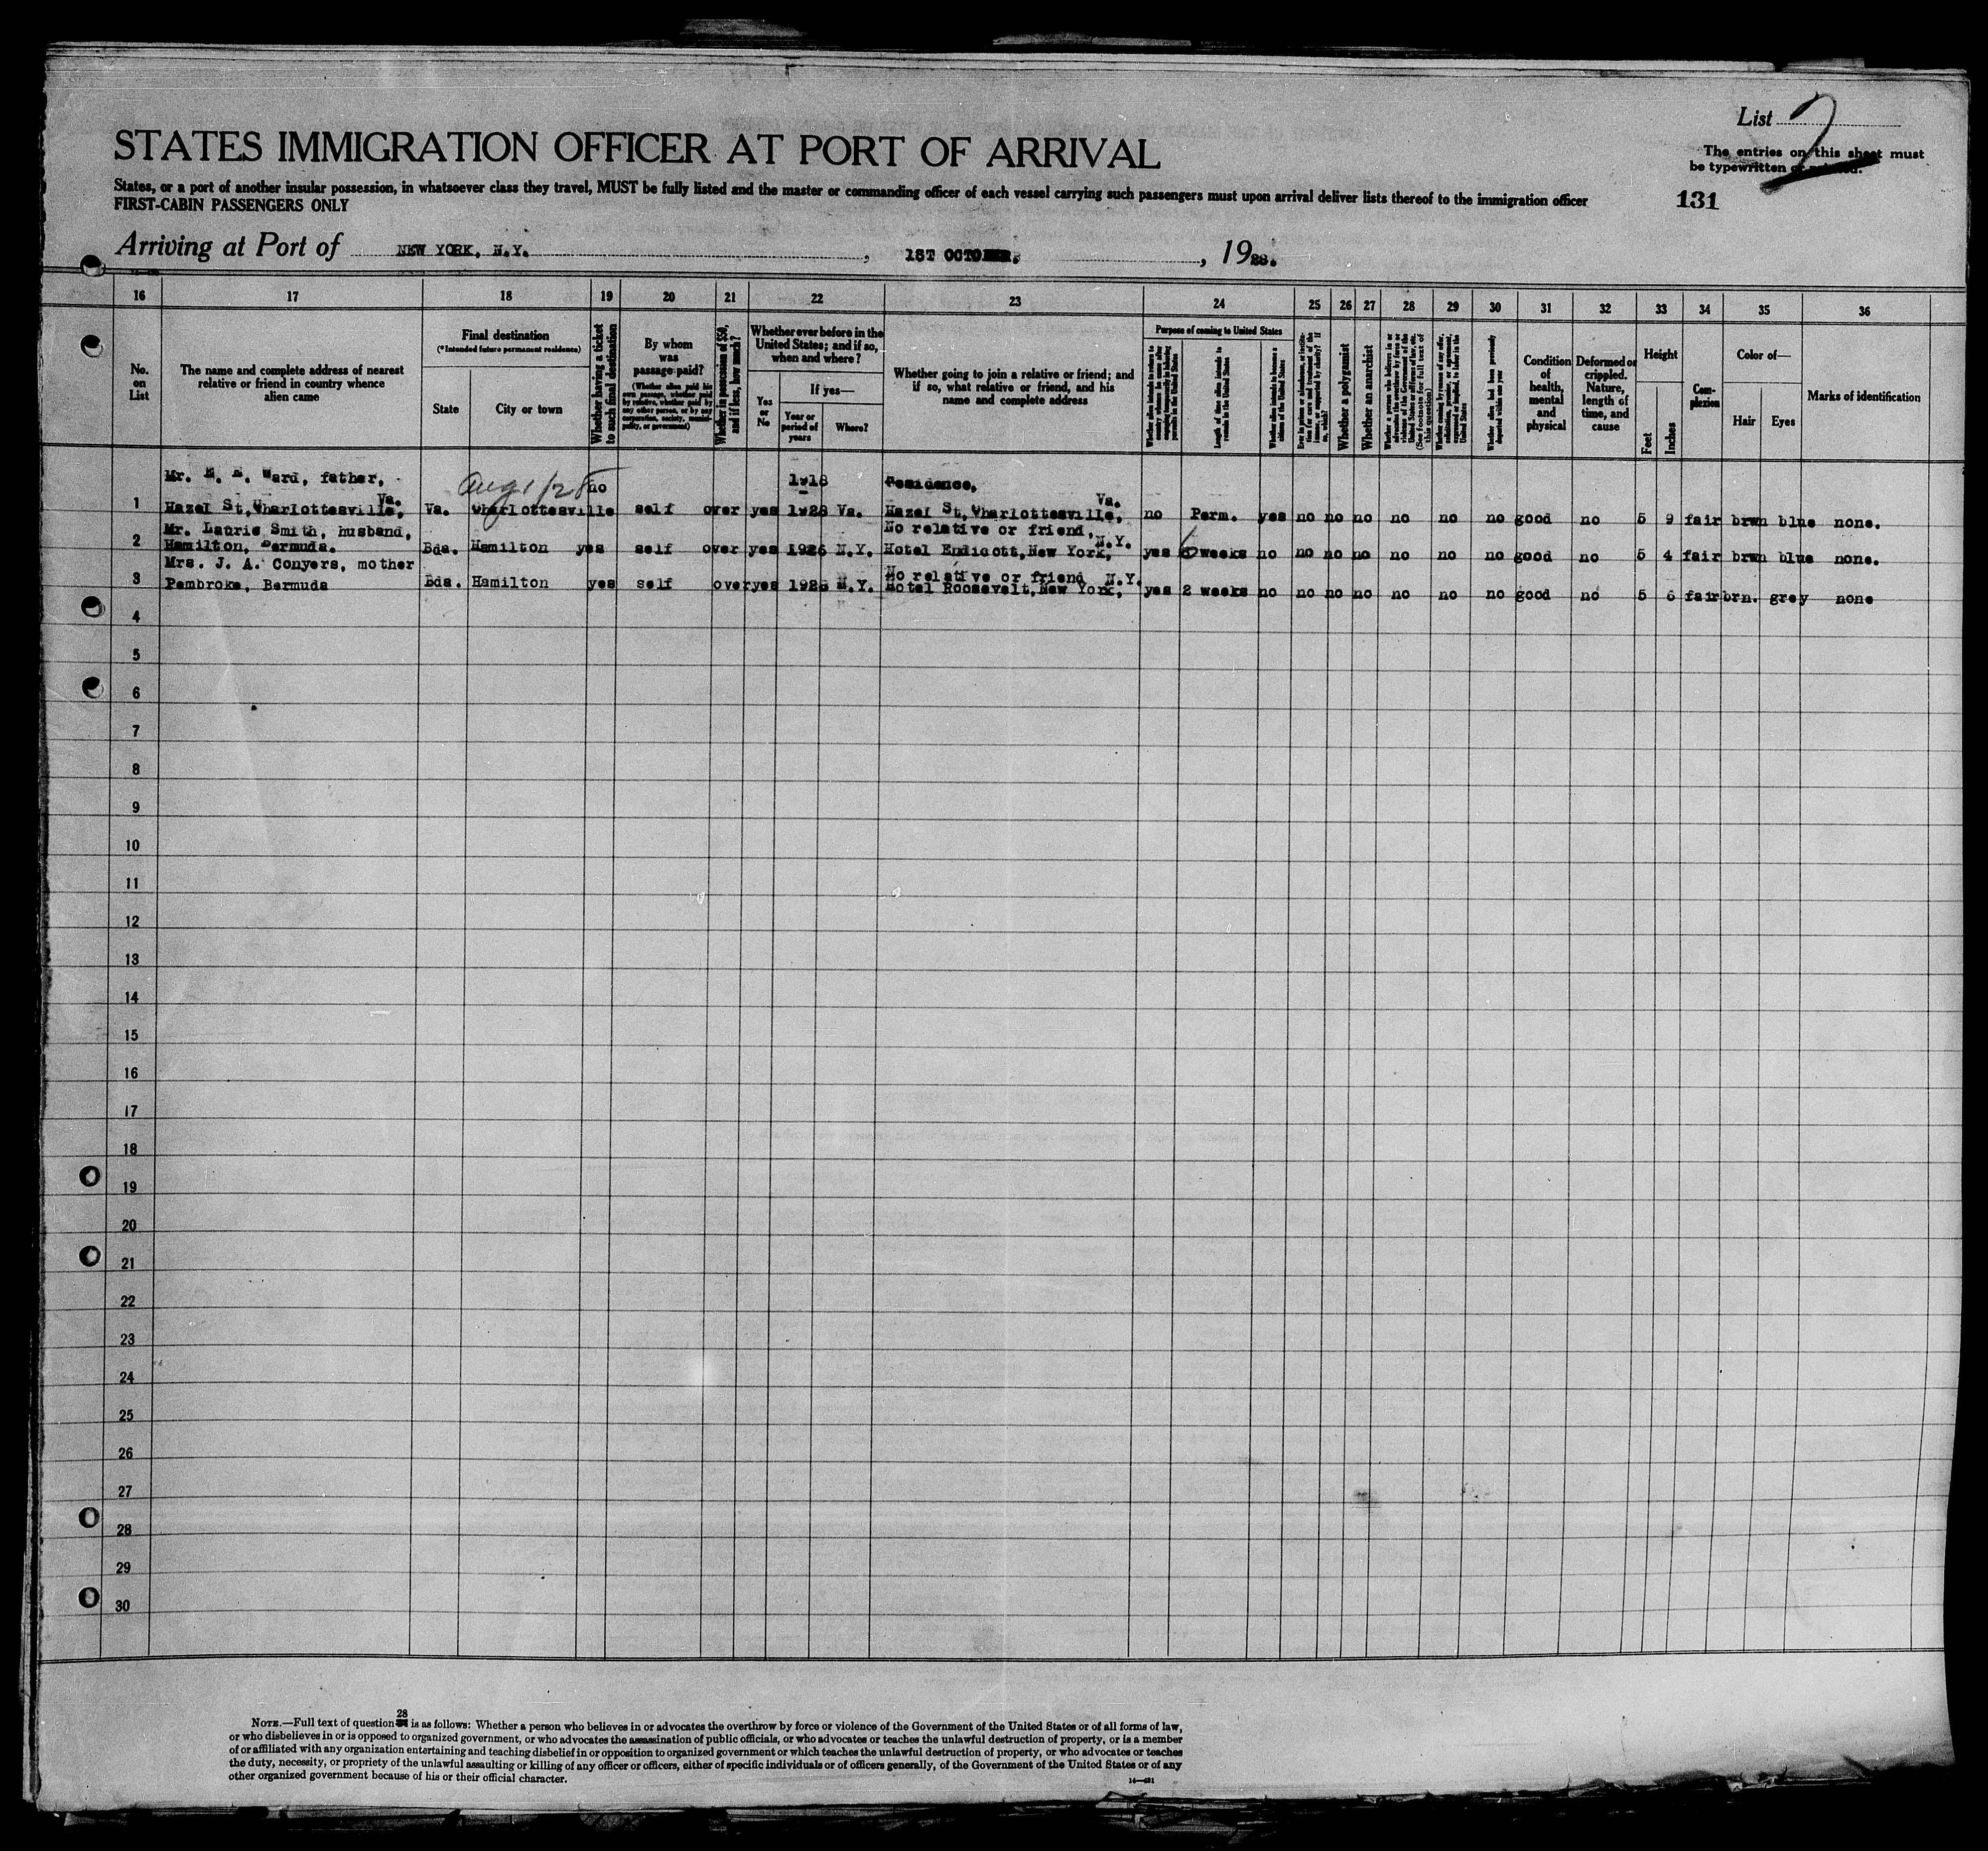 List
The entries on this sheet must
be typewritten or printed.
131
STATES IMMIGRATION OFFICER AT PORT OF ARRIVAL
States, or a port of another insular possession, in whatsoever class they travel, MUST be fully listed and the master or commanding officer of each vessel carrying such passengers must upon arrival deliver lists thereof to the immigration officer
FIRST-CABIN PASSENGERS ONLY
Arriving at Port of NEW YORK, N.Y., 1ST OCTOBER, 1928.
16 17 18 19 20 21 22 23 24 25 26 27 28 29 30 31 32 33 34 35 36
No. on List
The name and complete address of nearest
relative or friend in country whence
alien came
Final destination
(*Intended future permanent residence)
State
City or town
Whether having a ticket
to such final destination
By whom
was
passage paid?
(Whether alien paid his
own passage, whether paid
by relative, whether paid by
any other person, or by any
corporation, society, munici-
pality, or government)
Whether in possession of $50,
and if less, how much?
Whether ever before in the
United States; and if so,
when and where?
Yes or No
If yes—
Year or
period of
years
Where?
Whether going to join a relative or friend; and
if so, what relative or friend, and his
name and complete address
Purpose of coming to United States
Length of time alien intends to
remain in the United States
Whether alien intends to become a
citizen of the United States
Whether a polygamist
Whether an anarchist
(See footnote for full text of
this question)
Whether alien had been previously
deported within one year
Condition
of
health,
mental
and
physical
Deformed or
crippled.
Nature,
length of
time, and
cause
Height
Feet
Inches
Com-
plexion
Color of—
Hair
Eyes
Marks of identification
Ward, father, Aug 1/28 no 1918 Residence,
1 Hazel St, Charlottesville, Va. Va. Charlottesville self over yes 1928 Va. Hazel St, Charlottesville, Va. no Perm. yes no no no no no no good no 5 9 fair brwn blue none.
Mr. Laurie Smith, husband, No relative or friend,
2 Hamilton, Bermuda. Bda. Hamilton yes self over yes 1926 N.Y. Hotel Endicott, New York, N.Y. yes weeks no no no no no no no good no 5 4 fair brwn blue none.
Mrs. J. A. Conyers, mother No relative or friend
3 Pembroke, Bermuda Bda. Hamilton yes self over yes 1925 N.Y. Hotel Roosevelt, New York, N.Y. yes 2 weeks no no no no no no no good no 5 6 fair brn. grey none
4
5
6
7
8
9
10
11
12
13
14
15
16
17
18
19
20
21
22
23
24
25
26
27
28
29
30
28
NOTE.—Full text of question is as follows: Whether a person who believes in or advocates the overthrow by force or violence of the Government of the United States or of all forms of law,
or who disbelieves in or is opposed to organized government, or who advocates the assassination of public officials, or who advocates or teaches the unlawful destruction of property, or is a member
of or affiliated with any organization entertaining and teaching disbelief in or opposition to organized government or which teaches the unlawful destruction of property, or who advocates or teaches
the duty, necessity, or propriety of the unlawful assaulting or killing of any officer or officers, either of specific individuals or of officers generally, of the Government of the United States or of any
other organized government because of his or their official character.